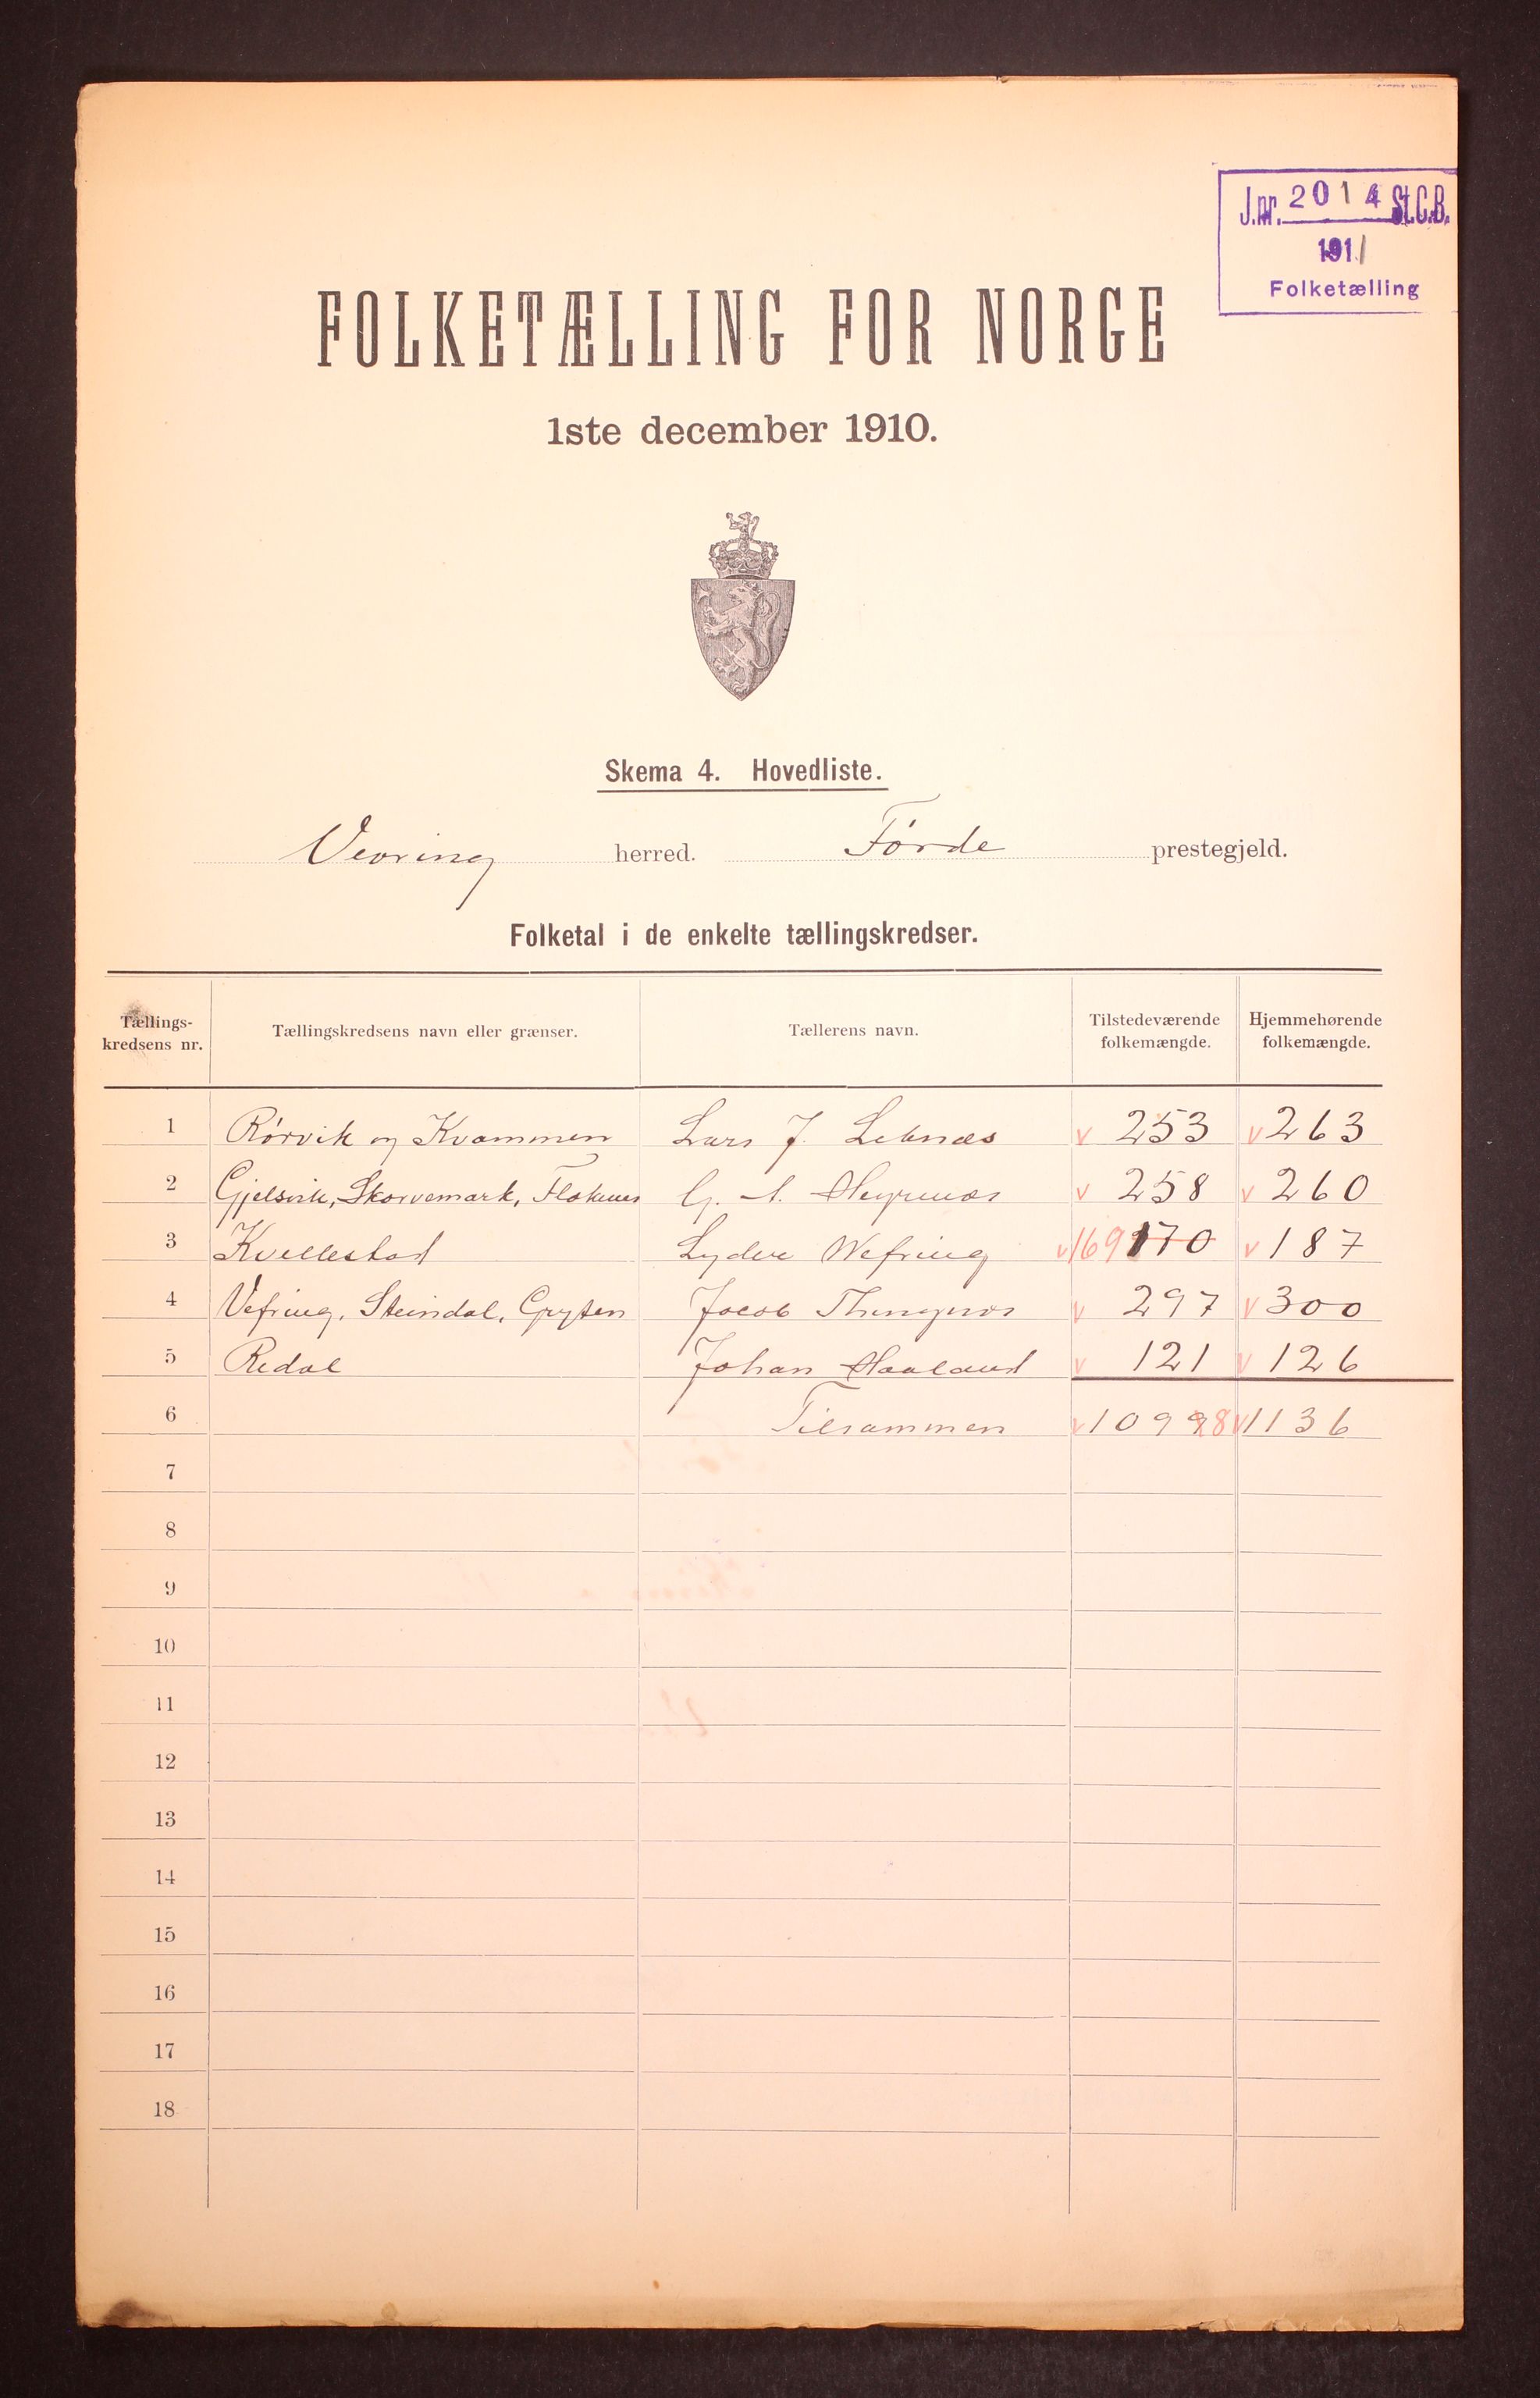 J.nr. 2014 St.C.B.
1911
Folketælling
FOLKETÆLLING FOR NORGE
1ste december 1910.
Skema 4. Hovedliste.
Vevring herred. Førde prestegjeld.
Folketal i de enkelte tællingskredser.
Tællings-kredsens nr. Tællingskredsens navn eller grænser. Tællerens navn. Tilstedeværende folkemængde. Hjemmehørende folkemængde.
1 Rørvik og Kvammen Lars J. v 253 v 263
2 Gjelsvik, Skorvemark, Flokenes v 258 v 260
3 Kvellestad Lyder Wefring v 169 170 v 187
4 Vefring, Steindal, Gryten Jacob v 297 v 300
5 Redal Johan Haaland v 121 v 126
6 Tilsammen v 1099 8 v 1136
7
8
9
10
11
12
13
14
15
16
17
18